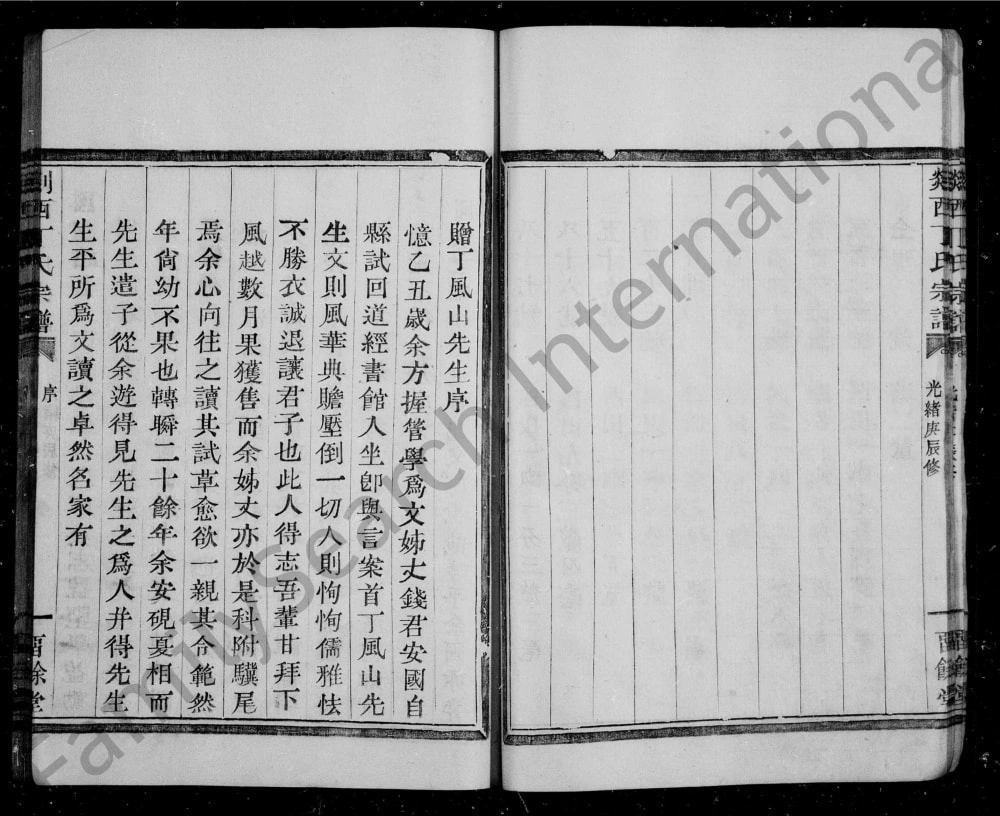 剡西丁氏宗譜
光緒庚辰修
一
留餘堂
贈丁風山先生序
憶乙丑歲余方握管學爲文姊丈錢君安國自
縣試回道經書館人坐卽與言案首丁風山先
生文則風華典贍壓倒一切人則恂恂儒雅怯
不勝衣誠退讓君子也此人得志吾輩甘拜下
風越數月果獲售而余姊丈亦於是科附驥尾
焉余心向往之讀其試草愈欲一親其令範然
年尙幼不果也轉瞬二十餘年余安硯夏相而
先生遣子從余遊得見先生之爲人并得先生
生平所爲文讀之卓然名家有
剡西丁氏宗譜
序
一
留餘堂
FamilySearch International